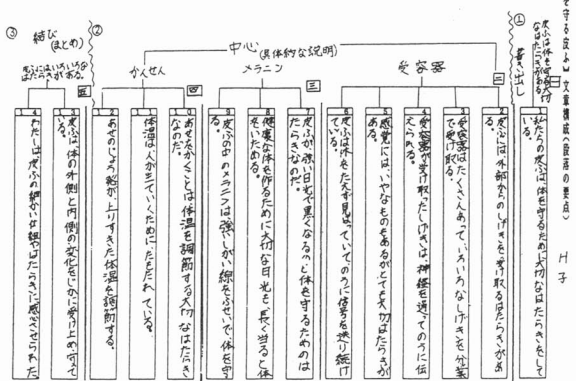 を守る皮ふ』 文章構成(段落の要点)
H子
①
皮ふは体を守る大切なはたらきがある
書き出し
一
1 私たちの皮ふは、体を守るために大切なはたらきをしている。
②
中心(具体的な説明)
受容器
二
2 皮ふには、外部からのしげきを受け取るはたらきがある。
3 受容器はたくさんあって、いろいろなしげきを分業で受け取る。
4 受容器が受け取ったしげきは、神経を通ってのうに伝えられる。
5 感覚には、いやなものもあるがとても大切なはたらきがある。
6 皮ふは外をたえず見はっていて、のうに信号を送り続けている。
メラニン
三
7 皮ふが強い日光で黒くなるのは、体を守るためのはたらきなのだ。
8 健康な体を作るために大切な日光も、長く当ると体をいためる。
9 皮ふの中のメラニンは強いしがい線をふせいで、体を守る。
かんせん
四
10 あせをかくことは体温を調節する大切なはたらきなのだ。
11 体温は人が生きていくために、たもたれている。
12 あせのじょう発が、上りすぎた体温を調節する。
③
結び(まとめ)
皮ふにはいろいろなはたらきがある。
五
13 皮ふは、体の外側と内側の変化をじかに受け止め、守っている。
14 わたしは皮ふの細かい仕組やはたらきに感心させられた